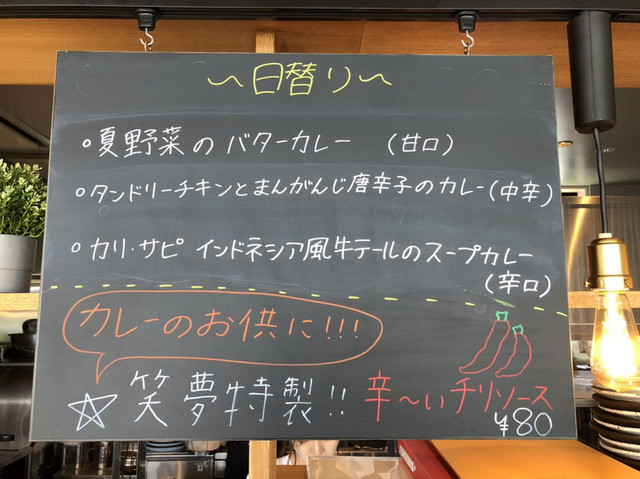 〜日替り〜
○夏野菜のバターカレー (甘口)
○タンドリーチキンとまんがんじ唐辛子のカレー(中辛)
○カリ・サピ インドネシア風牛テールのスープカレー
(辛口)
カレーのお供に!!!
☆笑夢特製!!辛〜いチリソース
¥80